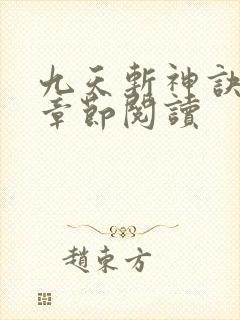 九天斬神訣
章節閱讀
趙東方